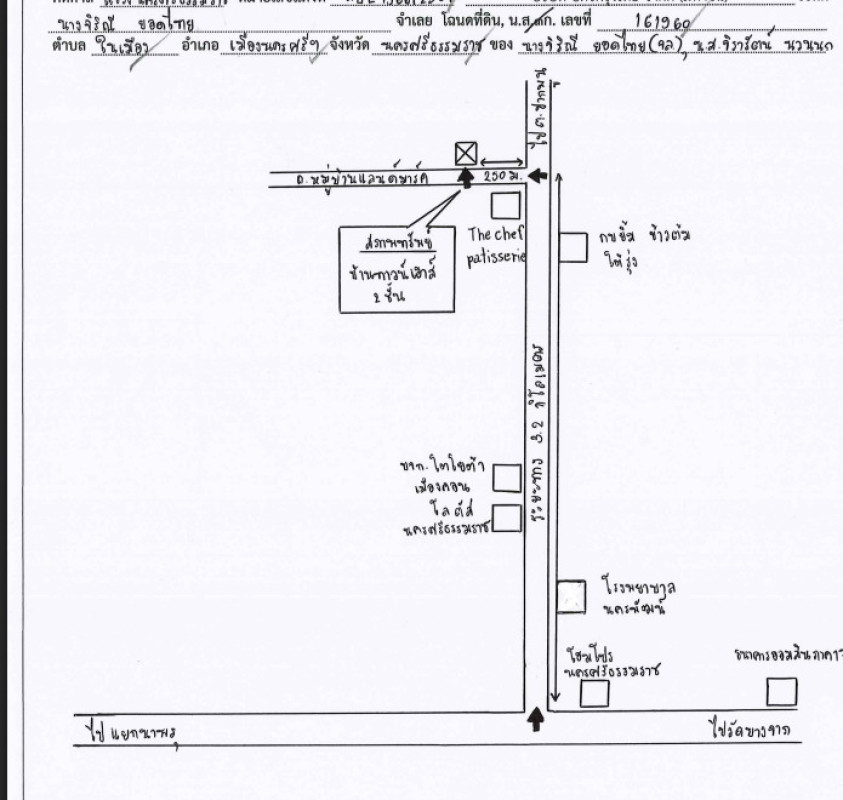 นางจิรณี ยอดไทย จำเลย โฉนดที่ดิน, น.ส.๓ก. เลขที่ 161960
ตำบล ในเมือง อำเภอ เมืองนครศรีฯ จังหวัด นครศรีธรรมราช ของ นางจิรณี ยอดไทย (จล), น.ส.จิรารัตน์ นวนนก
ไป ต.ปากพูน
ถ.หมู่บ้านแลนด์มาร์ค 250 ม.
สภาพทรัพย์
บ้านทาวน์เฮาส์
2 ชั้น
The chef
patisserie
ข้าวต้ม
ระยะทาง 3.2 กิโลเมตร
บจก.โตโยต้า
เมืองคอน
โลตัส
นครศรีธรรมราช
โรงพยาบาล
นครพัฒน์
โฮมโปร
นครศรีธรรมราช
ธนาคารออมสินภาค
ไปแยกนาพรุ
ไปวัดบางจาก